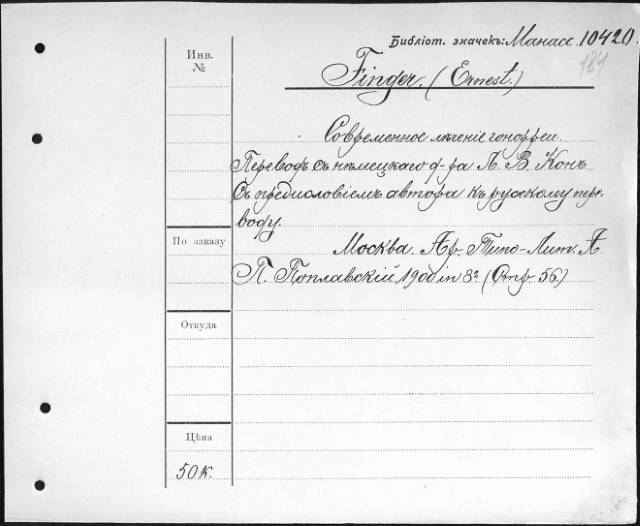 Библіот. значекъ: Манасс. 10420.
184
Инв.
№
Finger, (Ernest.)
Современное лѣченіе гонорреи.
Переводъ съ нѣмецкаго д-ра Л. В. Конъ
Съ предисловіемъ автора къ русскому пере-
воду.
По заказу
Москва. Ар. Типо-Лит. А.
П. Поплавскій 1900 in 8º (Стр. 56)
Откуда
Цѣна
50 к.